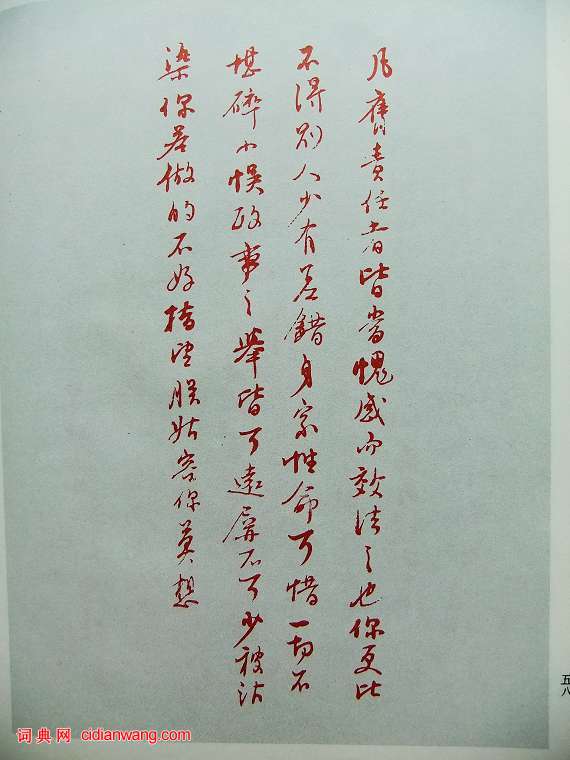 凡膺責任者皆當愧感而效法之也你更比
不得別人少有差錯身家性命可惜一切不
堪碎小悞政事之舉皆可遠屏不可少被沾
染你若做的不好指望朕姑容你莫想
五八
词典网 cidianwang.com